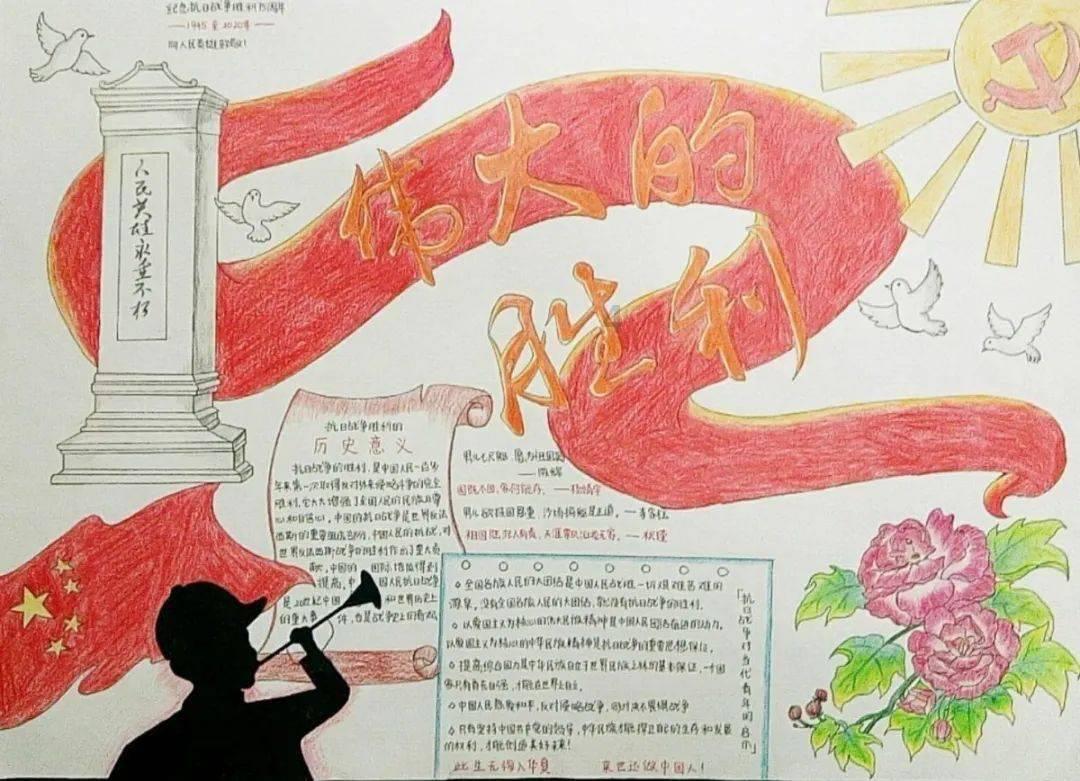 纪念抗日战争胜利75周年
——1945至2020年——
向人民英雄致敬!
伟大的
胜利
人民英雄永垂不朽
抗日战争胜利的
历史意义
抗日战争的胜利,是中国人民一百多
年来第一次取得反对外来侵略斗争的完全
胜利,它大大增强了全国人民的民族自尊
心和自信心,中国的抗日战争是世界反法
西斯的重要组成部分,中国人民的抗战,对
世界反法西斯战争的胜利作出了重大贡
献,中国的 国际地位得到
提高,中 国人民抗日战争
是20世纪中 和世界历史上
的重大事 件,也是战争史上的奇观。
男儿七尺躯,愿为祖国
国既不国,家何能存。——杨靖宇
男儿欲报国恩重,沙场捐躯是正道。——李家钰
祖国 人有责,天涯 ——秋瑾
全国各族人民的大团结是中国人民战胜一切艰难苦难的
源泉,没有全国各族人民的大团结,就没有抗日战争的胜利。
以爱国主义为核心的伟大民族精神是中国人民团结奋进的动力,
以爱国主义为核心的中华民族精神是抗日战争的重要思想保证。
提高综合国力是中华民族自立于世界民族之林的基本保证,一个国
家只有自立自强,才能在世界上自立。
中国人民热爱和平,反对侵略战争,同时决不畏惧战争
只有坚持中国共产党的领导,中华民族才能捍卫自己的生存和发展
的权利,才能创造美好未来!
此生无悔入华夏 来世还做中国人!
「抗日战争对当代青年的启示」